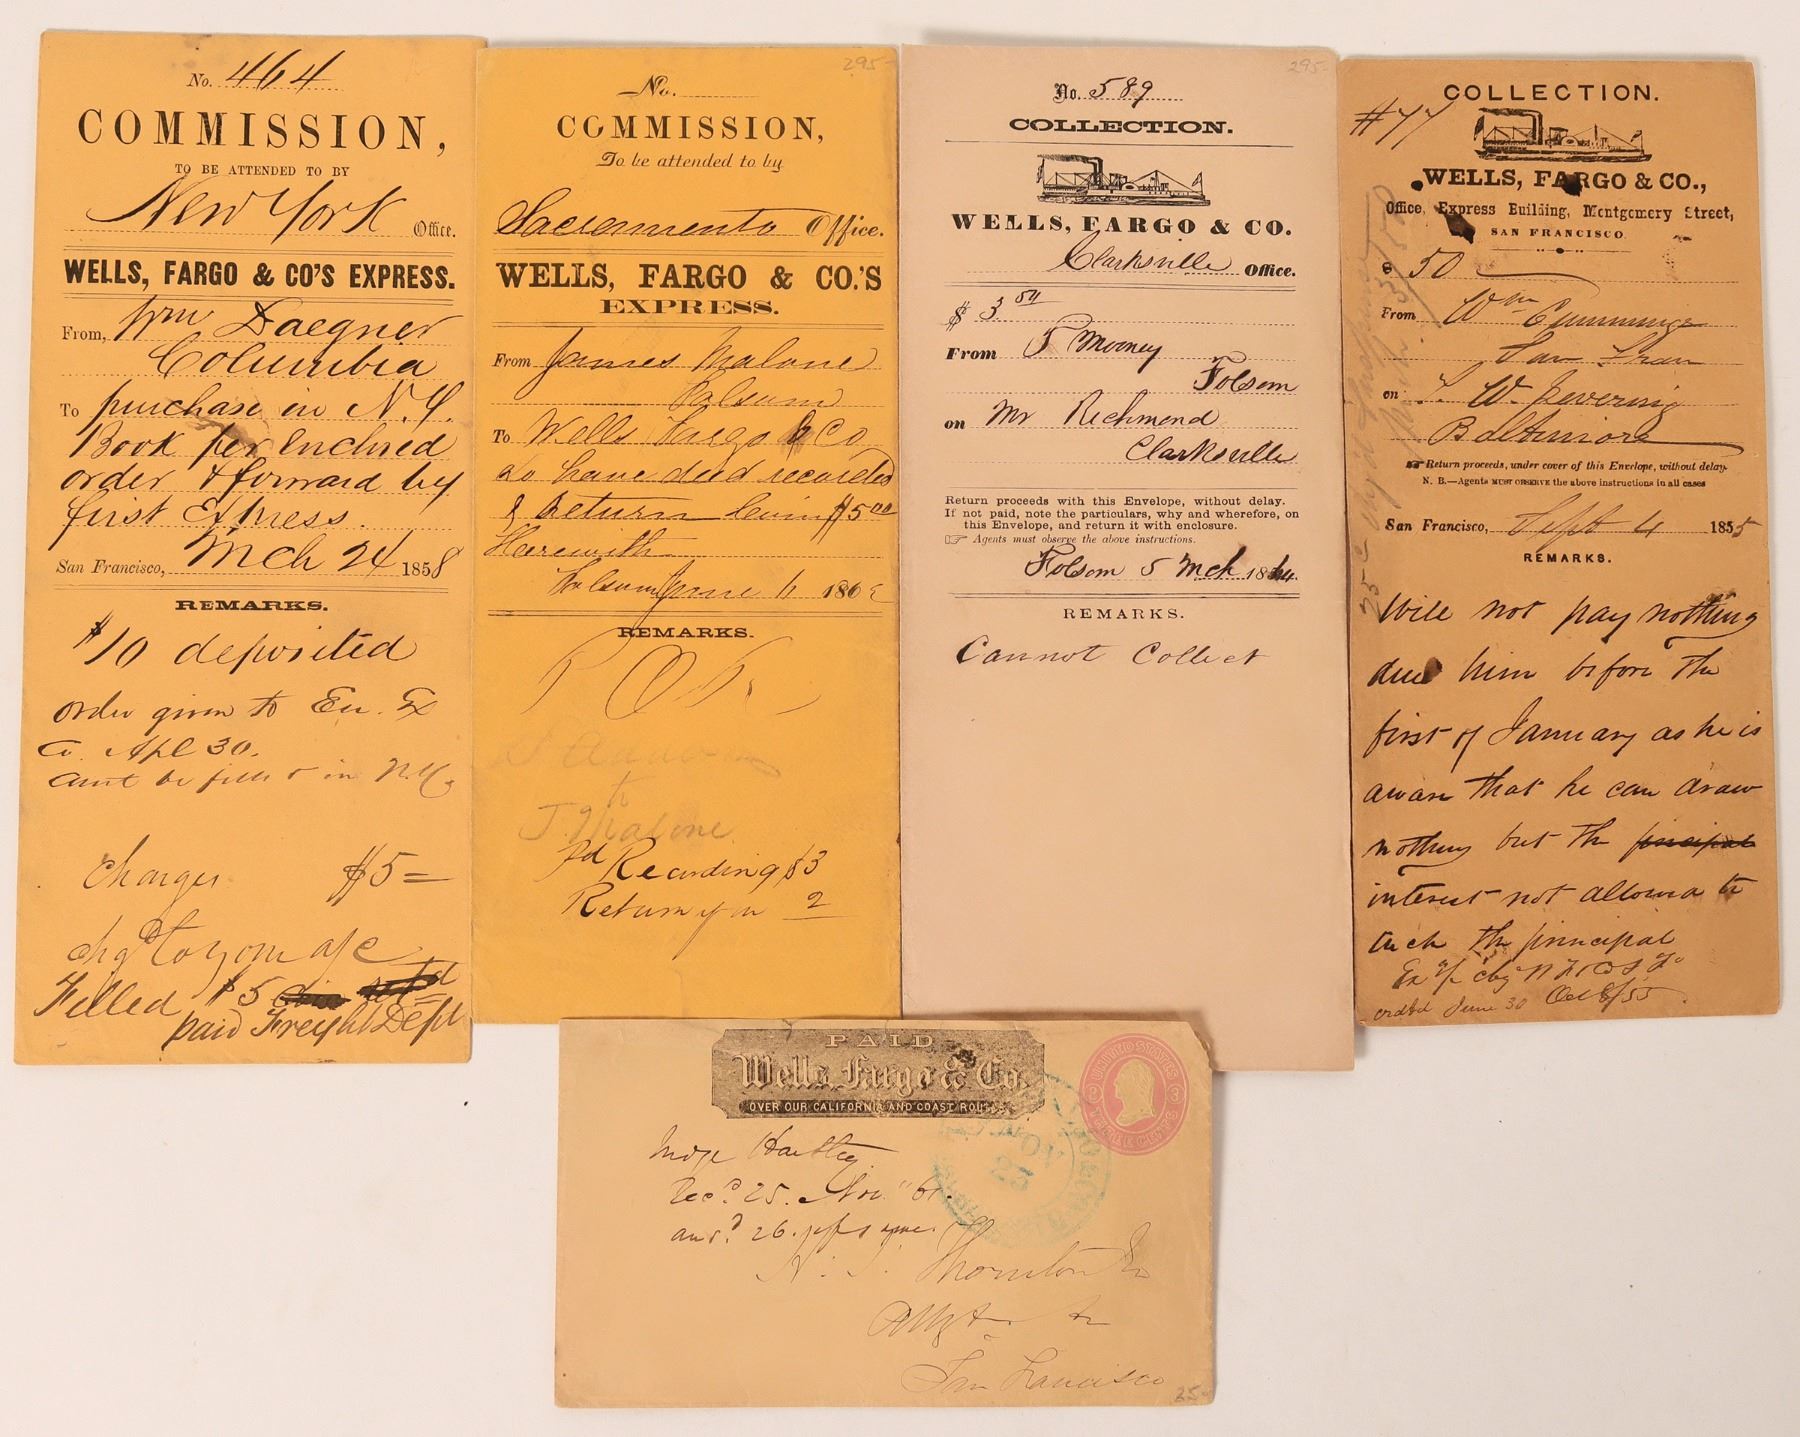 No. 464
COMMISSION,
TO BE ATTENDED TO BY
New York Office.
WELLS, FARGO & CO'S EXPRESS.
From, Wm Daegner
Columbia
To purchase in N.Y.
Book per Enclosed
order & forward by
first Express.
San Francisco, Mch 24 1858
REMARKS.
$10 deposited
order given to Eu. Ex
Co. Apl 30.
cant be filled in N.Y.
Charges $5=
chgd to your a/c
Filled $5
paid Freight Dept
295-
No.
COMMISSION,
To be attended to by
Sacramento Office.
WELLS, FARGO & CO.'S
EXPRESS.
From James Malone
Folsom
To Wells Fargo & Co
to have deed recorded
& Return $5 00
Herewith
Folsom June 6 186
REMARKS.
to
J. Malone
Pd Recording $3
Return 2
295-
No. 589
COLLECTION.
WELLS, FARGO & CO.
Clarksville Office.
$ 3 50
From P Mooney
Folsom
on Mr Richmond
Clarksville
Return proceeds with this Envelope, without delay.
If not paid, note the particulars, why and wherefore, on
this Envelope, and return it with enclosure.
Agents must observe the above instructions.
Folsom 5 Mch 1864.
REMARKS.
Cannot Collect
COLLECTION.
#77
WELLS, FARGO & CO.,
Office, Express Building, Montgomery Street,
SAN FRANCISCO.
$ 50
From Wm Cummings
San Fran
on T. W. Levering
Baltimore
Return proceeds, under cover of this Envelope, without delay.
N. B.—Agents MUST OBSERVE the above instructions in all cases
San Francisco, Sept 4 1855
REMARKS.
Will not pay nothing
due him before the
first of January as he is
aware that he can draw
nothing but the principal
interest not allowed to
tuch the principal
Oct 8/55
June 30
25c
PAID
Wells, Fargo & Co.
OVER OUR CALIFORNIA AND COAST ROUTES
UNITED STATES
3 3
THREE CENTS
Judge Hartley
Recd. 25. Nov. "61.
ansd. 26.
H. I. Thornton Jr
Atty
San Francisco
25-